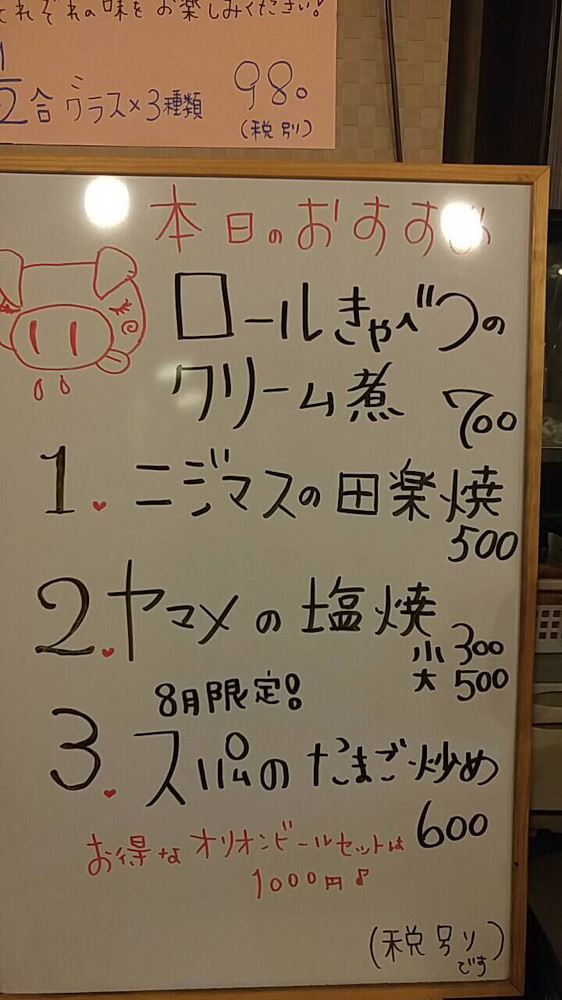 それぞれの味をお楽しみください!
1/2合グラス×3種類 980
(税別)
本日のおすすめ
ロールきゃべつの
クリーム煮 700
1. ニジマスの田楽焼
500
2. ヤマメの塩焼
小 300
大 500
8月限定!
3. スパムのたまご炒め
600
お得なオリオンビールセットは
1000円♪
(税別)
です